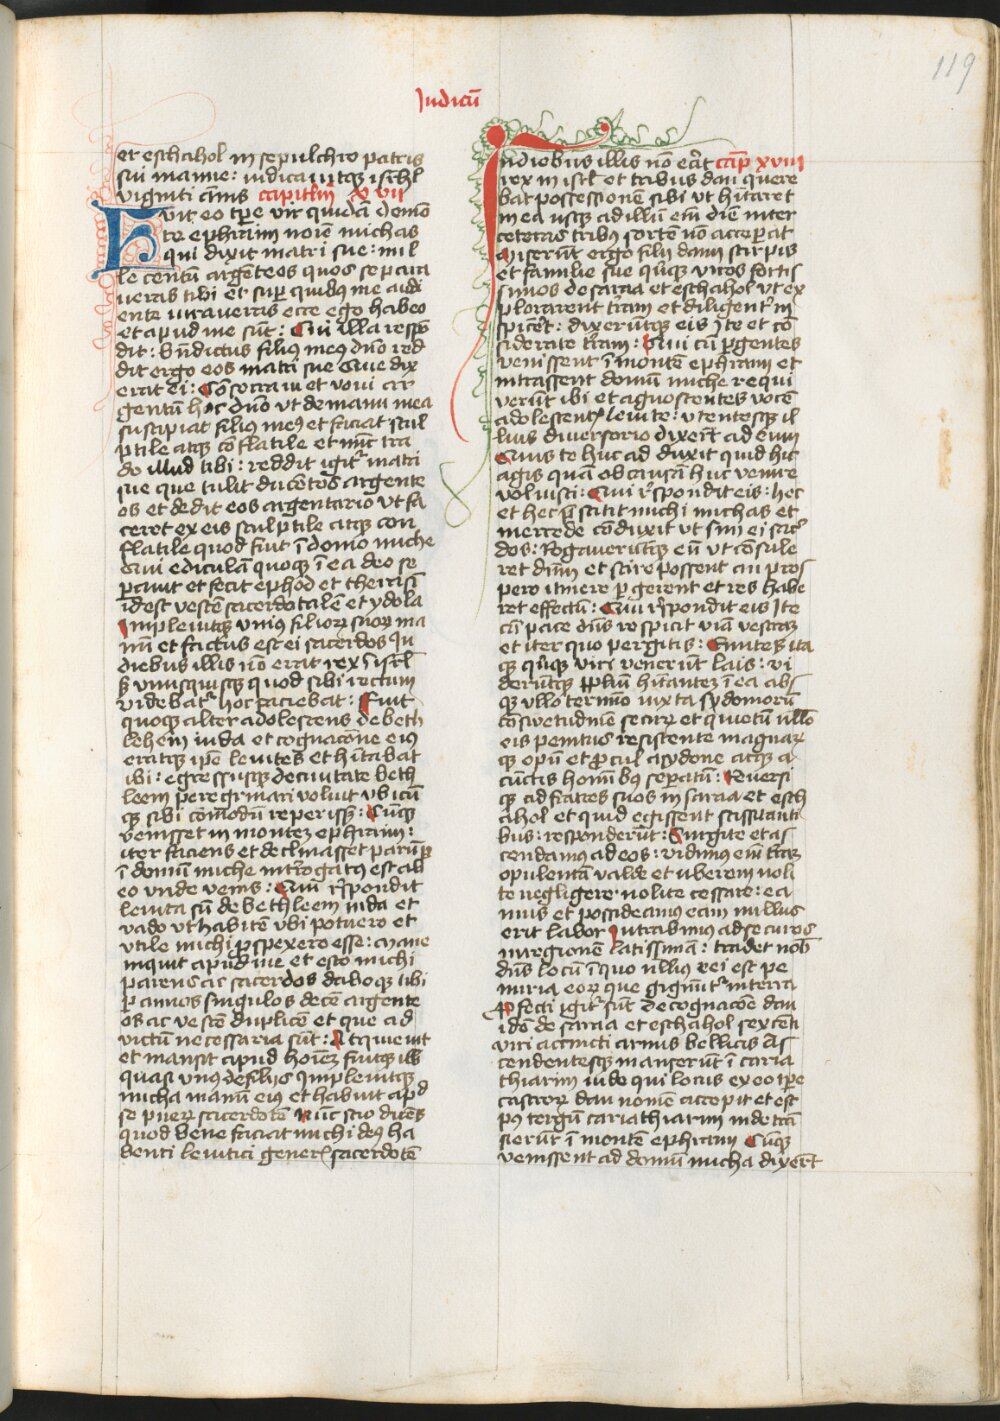 119
Judicū
et eschahol in sepulchro patris
sui manue: iudicauitqꝫ isrl̄
viginti annis capitlm̄ xvii
Fuit eo tp̄e vir quidā de mon
te ephraim noīe michas
qui dixit matri sue: mil
le centū argēteos quos separa
ueras tibi et sup̄ quibus me audi
ente iuraueras ecce ego habeo
et apud me sūt: Cui illa respō
dit: bn̄dictus filius meus dn̄o red
dit ergo eos matri sue Que dix
erat ei: Cōsecraui et voui ar
gentū hoc dn̄o vt de manu mea
suscipiat filius meꝰ et faciat scul
ptile atqꝫ cōflatile et nūc tra
do illud tibi: reddit igit᷑ matri
sue que tulit ducētos argente
os et dedit eos argentario vt fa
ceret ex eis sculptile atqꝫ con
flatile quod fuit ī domo miche
Qui ediculā quoqꝫ ī ea deo se
parauit et fecit ephod et therafī
id est vestē sacerdotalē et ydola
Impleuitqꝫ vniꝰ filioꝝ suoꝝ ma
nū et factus est ei sacerdos In
diebus illis nō erat rex ī isrl̄
sꝫ vnusquisqꝫ quod sibi rectum
videbat᷑ hoc faciebat: Fuit
quoqꝫ alter adolescens de beth
lehem iuda et cognacōne eiꝰ
eratqꝫ ip̄e leuites et hītabat
ibi: egressusqꝫ de ciuitate beth
leem peregrinari voluit vbicū
qꝫ sibi cōmodū reperisset: Cūqꝫ
venisset in montez ephraim:
iter faciens et declinasset parūper
ī domū miche intʳrogatꝰ est ab
eo vnde venis: Qui r̄spondit
leuita sū de bethleem iuda et
vado vt habitē vbi potuero et
vtile michi perspexero esse: mane
inquit apud me et esto michi
parens ac sacerdos daboqꝫ tibi
per annos singulos decē argente
os ac vestē duplicē et que ad
victū necessaria sūt: Acqueuit
et mansit apud hoīez fuitqꝫ illi
quasi vnꝰ de filijs Impleuitqꝫ
micha manū eiꝰ et habuit apd
se pueꝝ sacerdotē Nūc scio dicēs
quod bene faciat michi deꝰ ha
benti leuitici gener̄ sacerdotē
In diebus illis nō erat cap̄ xviii
rex in isrl̄ et tribus dan quere
bat possessionē sibi vt hītaret
in ea usqꝫ ad illū em̄ diē inter
ceteras tribus sortē nō acceperat
Miserūt ergo filij dann stirpis
et familie sue qn̄qꝫ viros fortis
simos de saraa et eschahol vt ex
plorarent tr̄am et diligent᷑ in
spicer̄t: dixerūtqꝫ eis Ite et cō
siderate tr̄am: Qui cū pergentes
venissent ī montē ephraim et
intrassent domū miche requi
verūt ibi et agnoscentes vocē
adolescentis leuite: vtentesqꝫ il
lius diuersorio dixer̄t ad eum
Quis te huc adduxit quid hic
agis quā ob causā huc venire
voluisti: Qui r̄spondit eis: hec
et hec p̄stitit michi michas et
mercede cōduxit vt sim ei sacer
dos: Rogauerūtqꝫ eū vt cōsule
ret dn̄m et scire possent an pros
pero itinere pergerent et res habe
ret effectū: Qui r̄spondit eis Ite
cū pace dn̄s respicit viā vestraꝫ
et iter quo pergitis: Euntes ita
qꝫ qn̄qꝫ viri venerūt lais: vi
derūtqꝫ pplm̄ hītantez ī ea abs
qꝫ vllo termino iuxta sydonioꝝ
cōswetudinē secuꝝ et quietū nullo
eis penitus resistente magnaꝝ
qꝫ opū et procul a sydone atqꝫ a
cūctis homībꝰ seperatū: Reuersi
qꝫ ad fratres suos in saraa et esch
ahol et quid egissent scissitanti
bus: responderūt: Surgite et as
cendamus ad eos: vidimus em̄ tr̄aꝫ
opulentā valde et vberem noli
te negligere nolite cessare: ea
mus et possideamus eam nullus
erit labor Intrabimus ad securos
in regionem latissimā: tradet nob̄
dn̄s locū ī quo nullius rei est pe
nuria eoꝝ que gignūt᷑ in terra
Profecti igit᷑ sūt de cognacōe dan
id ē de saraa et eschahol sexcēti
viri accincti armis bellicis As
cendentesqꝫ manserūt ī caria
thiarim iude qui locus ex eo tp̄e
castroꝝ dan nomē accepit et est
pꝰ tergū cariathiarim inde trā
sierūt ī montē ephraim Cūqꝫ
venissent ad domū micha dixer̄t